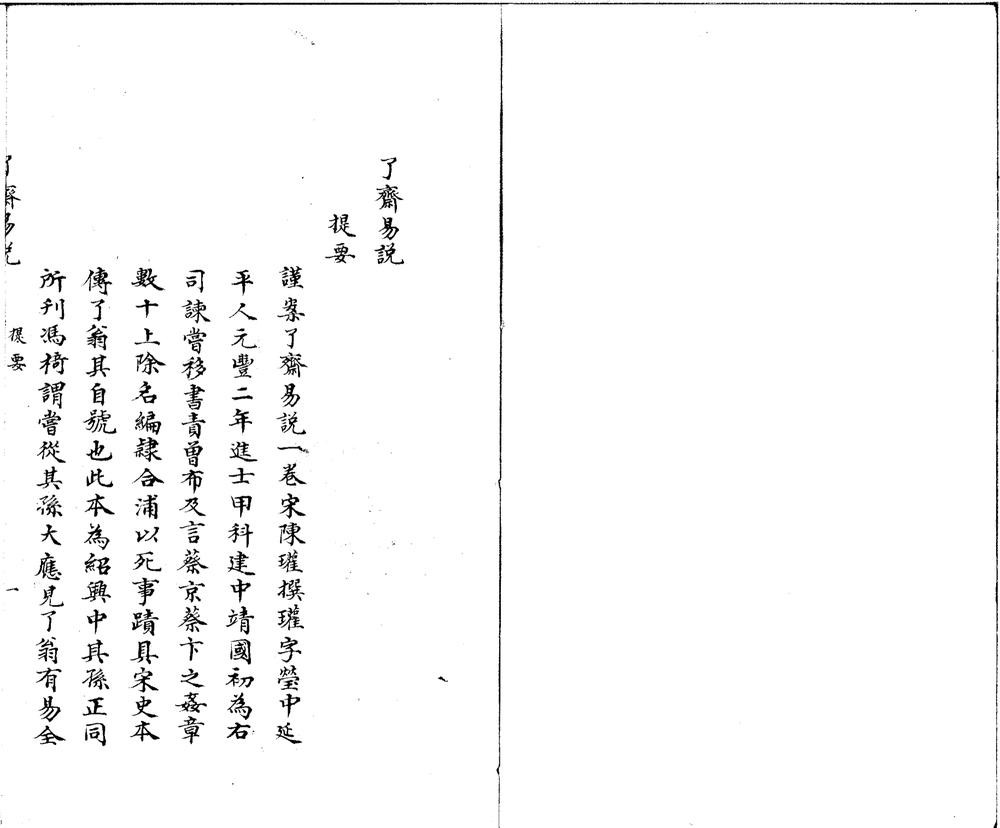 了齋易説
提要
謹案了齋易説一卷宋陳瓘撰瓘字瑩中延
平人元豐二年進士甲科建中靖國初為右
司諫嘗移書責曾布及言蔡京蔡卞之姦章
數十上除名編隸合浦以死事蹟具宋史本
傳了翁其自號也此本為紹興中其孫正同
所刊馮椅謂嘗從其孫大應見了翁有易全
了齋易説 提要 一